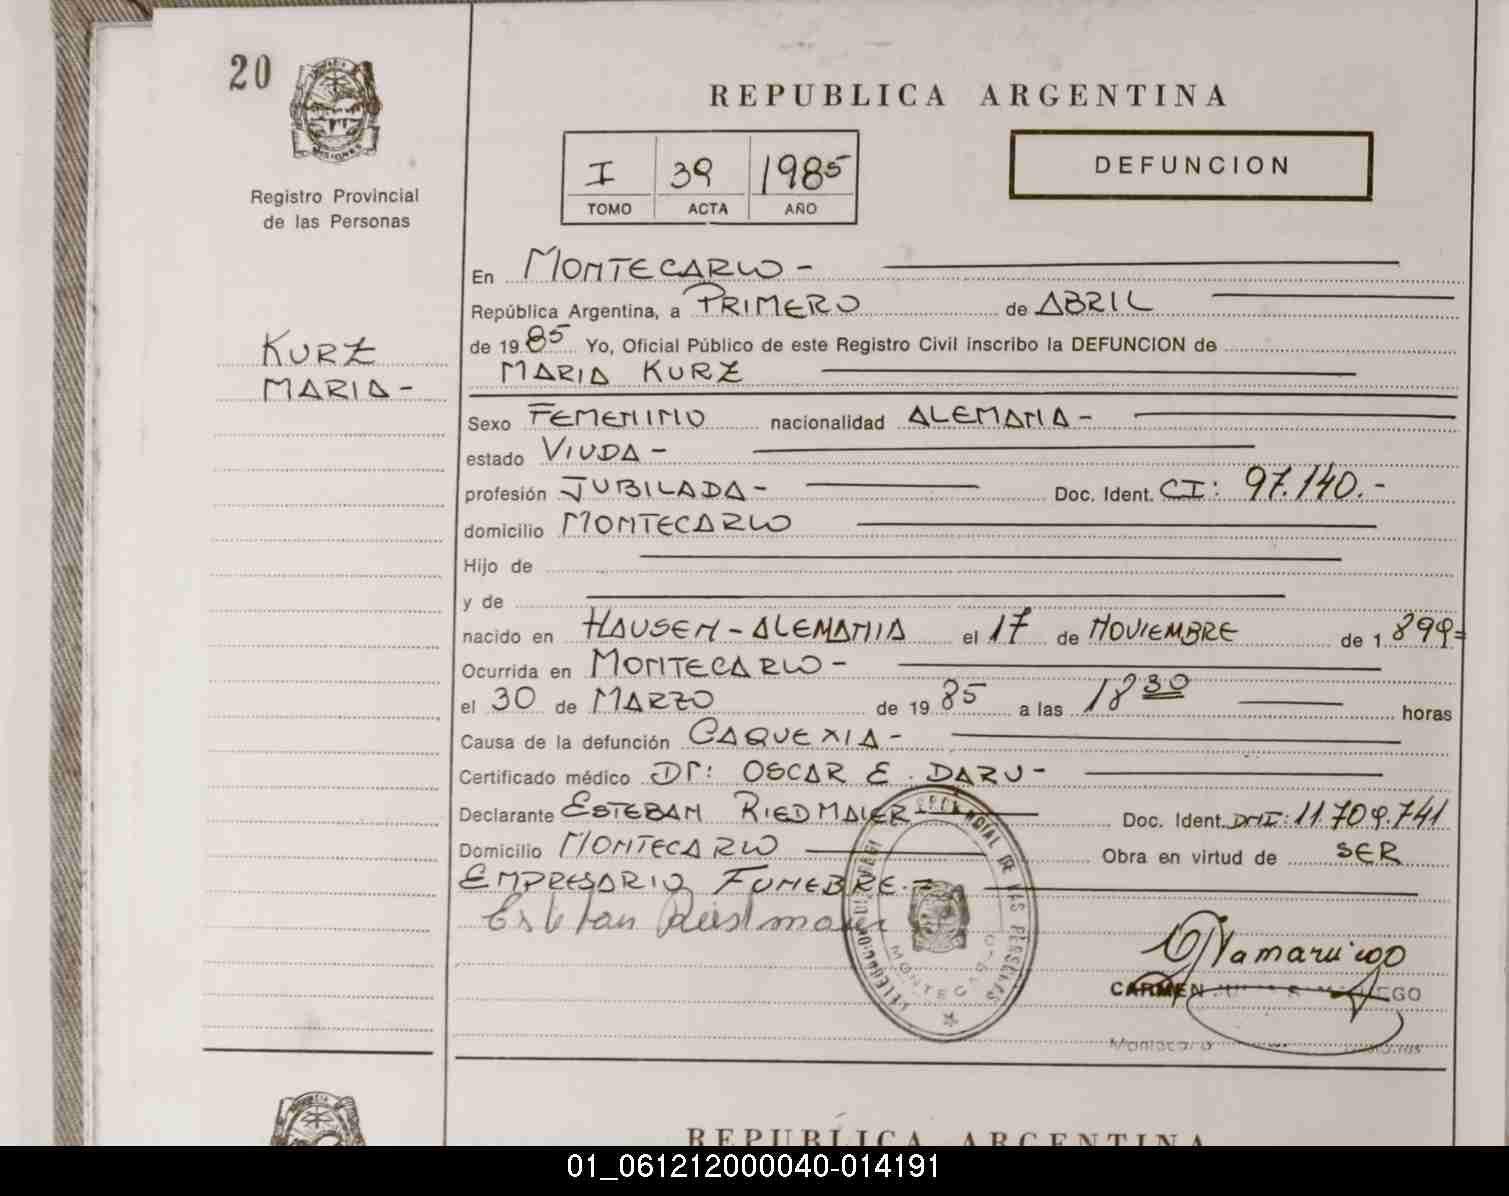 20
MISIONES
Registro Provincial
de las Personas
KURZ
MARIA-
REPUBLICA ARGENTINA
I 39 1985
TOMO ACTA AÑO
DEFUNCION
En MONTECARLO -
República Argentina, a PRIMERO de ABRIL
de 19 85 Yo, Oficial Público de este Registro Civil inscribo la DEFUNCION de
MARIA KURZ
Sexo FEMENINO nacionalidad ALEMANA -
estado VIUDA -
profesión JUBILADA - Doc. Ident. CI: 97.140.-
domicilio MONTECARLO
Hijo de
y de
nacido en HAUSEN - ALEMANIA el 17 de NOVIEMBRE de 1 899=
Ocurrida en MONTECARLO -
el 30 de MARZO de 19 85 a las 18 30 horas
Causa de la defunción CAQUEXIA -
Certificado médico Dr: OSCAR E. DARU -
Declarante ESTEBAN RIEDMAIER Doc. Ident. DNI: 11.709.741
Domicilio MONTECARLO Obra en virtud de SER
EMPRESARIO FUNEBRE.=
Esteban Riedmaier
MONTECARLO
CARMEN
REPUBLICA ARGENTINA
01_061212000040-014191